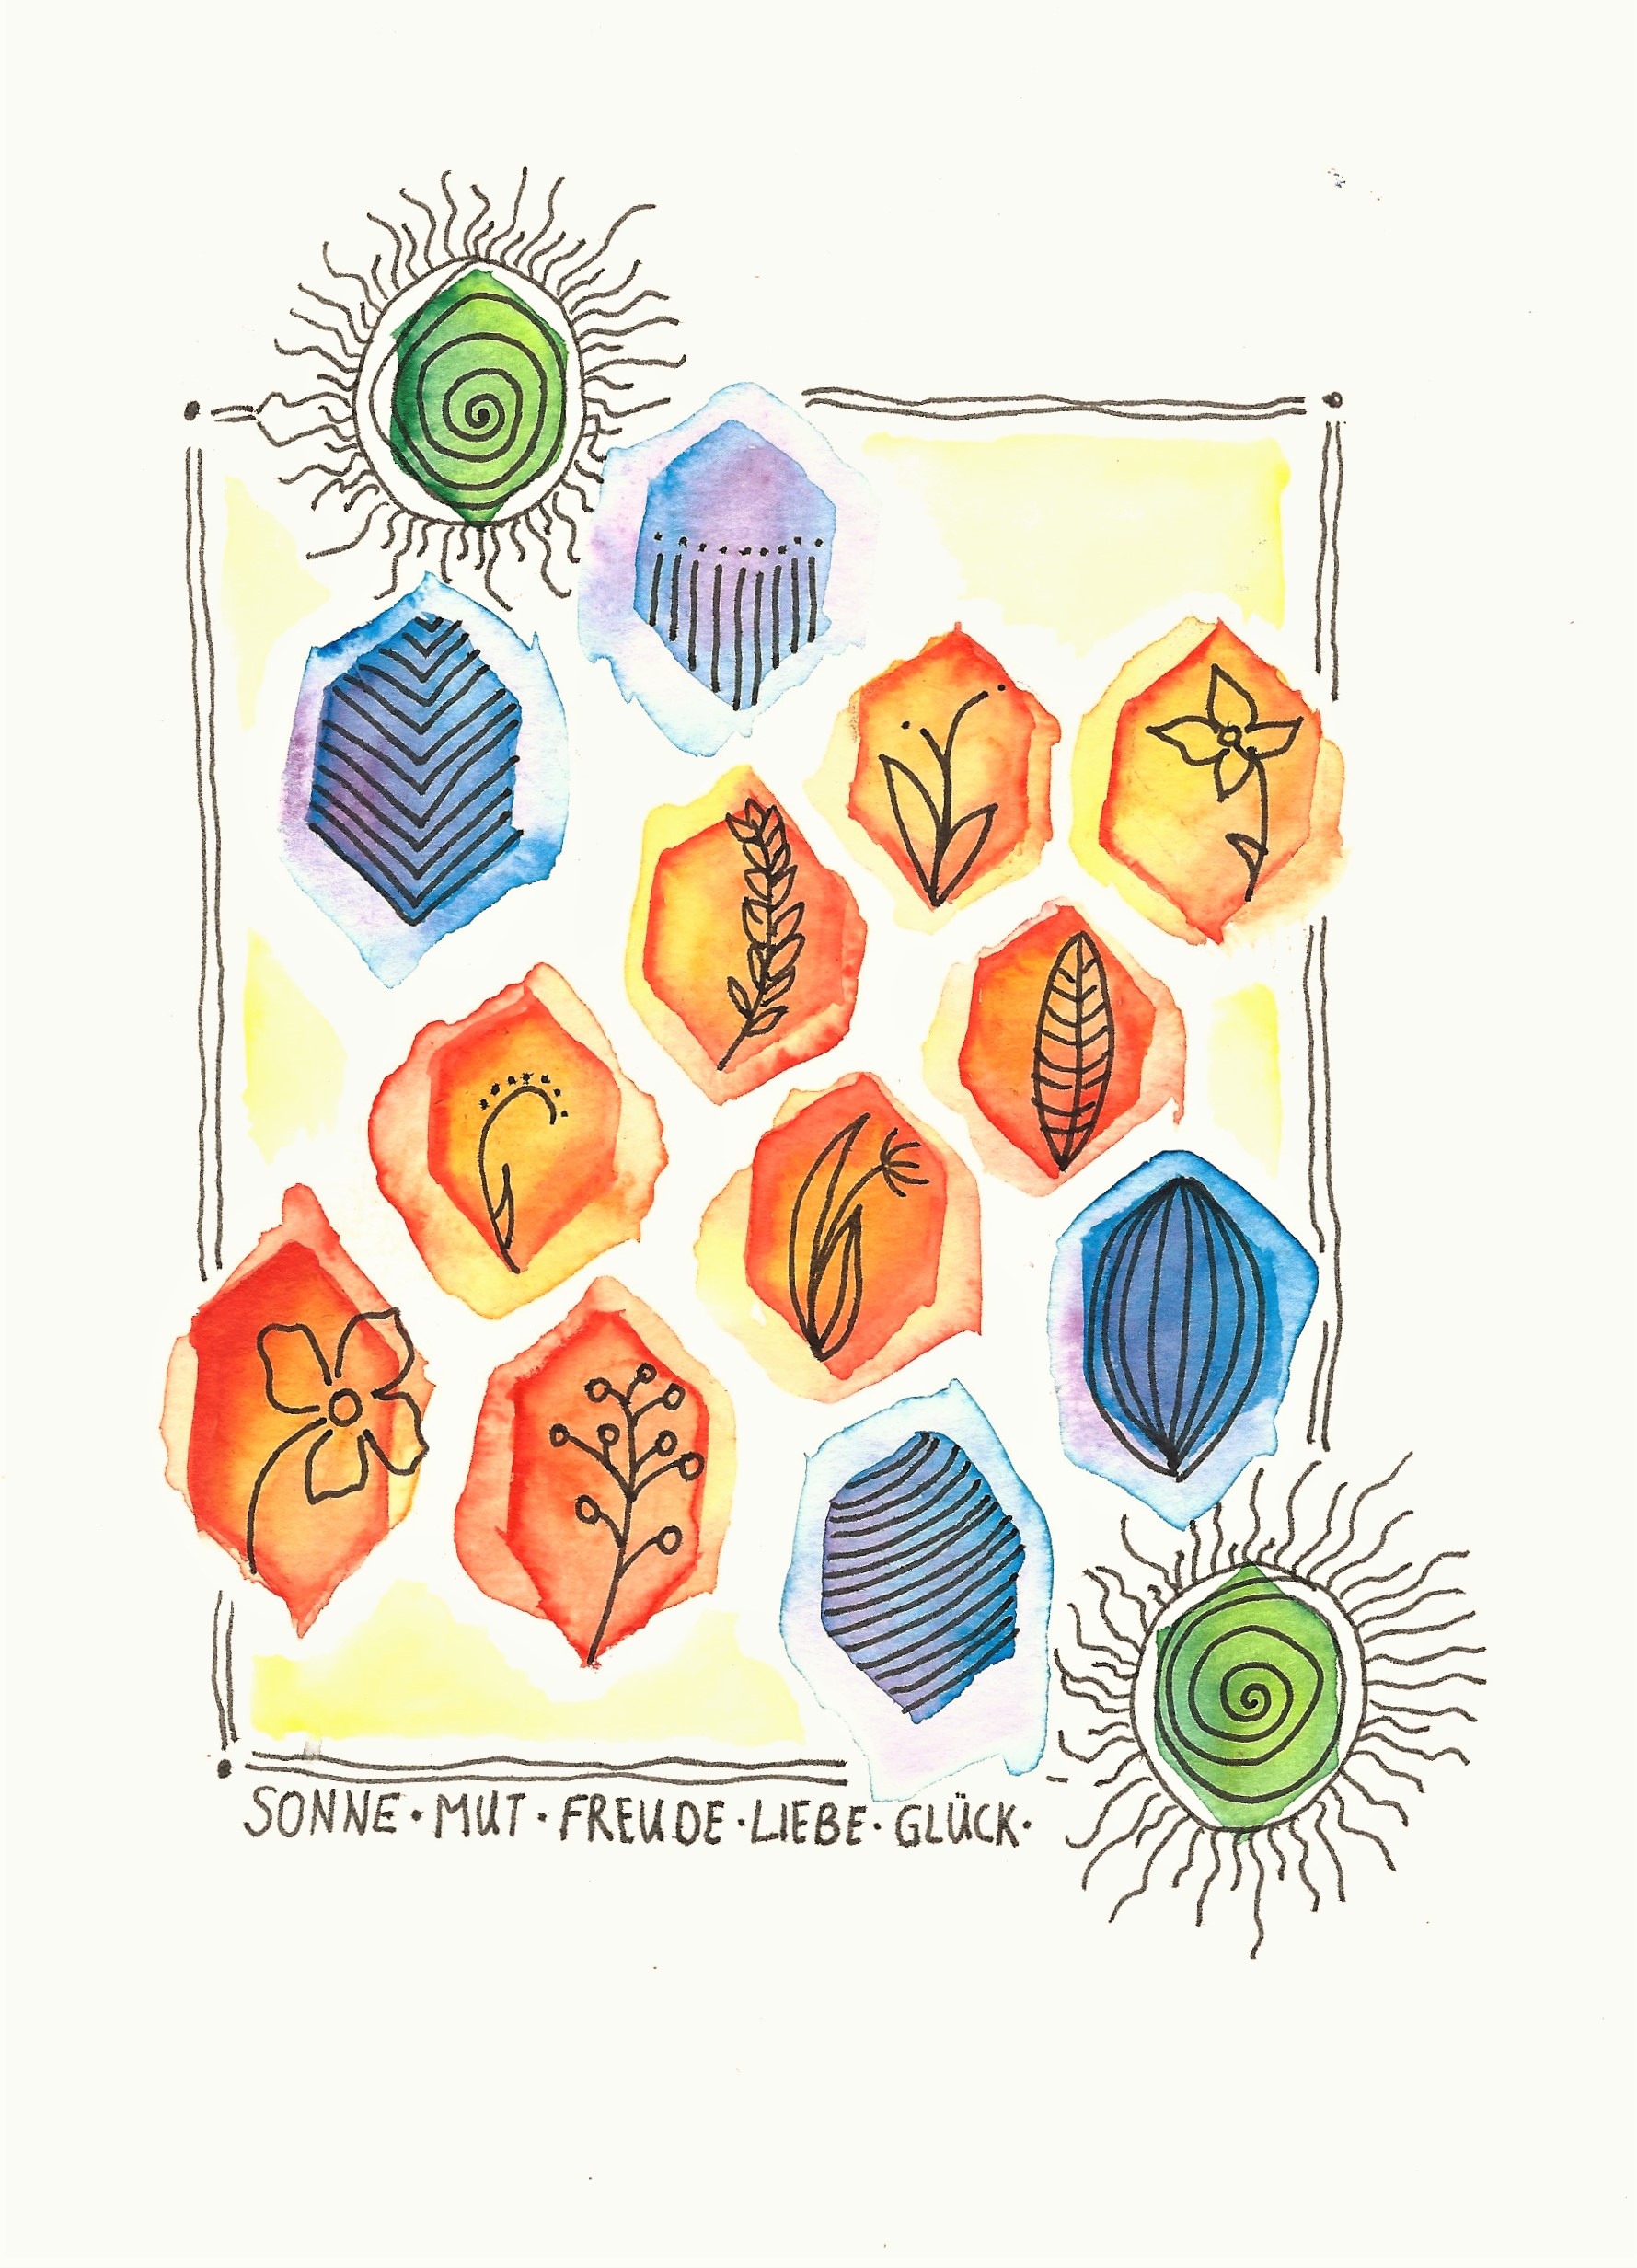 SONNE · MUT · FREUDE · LIEBE · GLÜCK ·